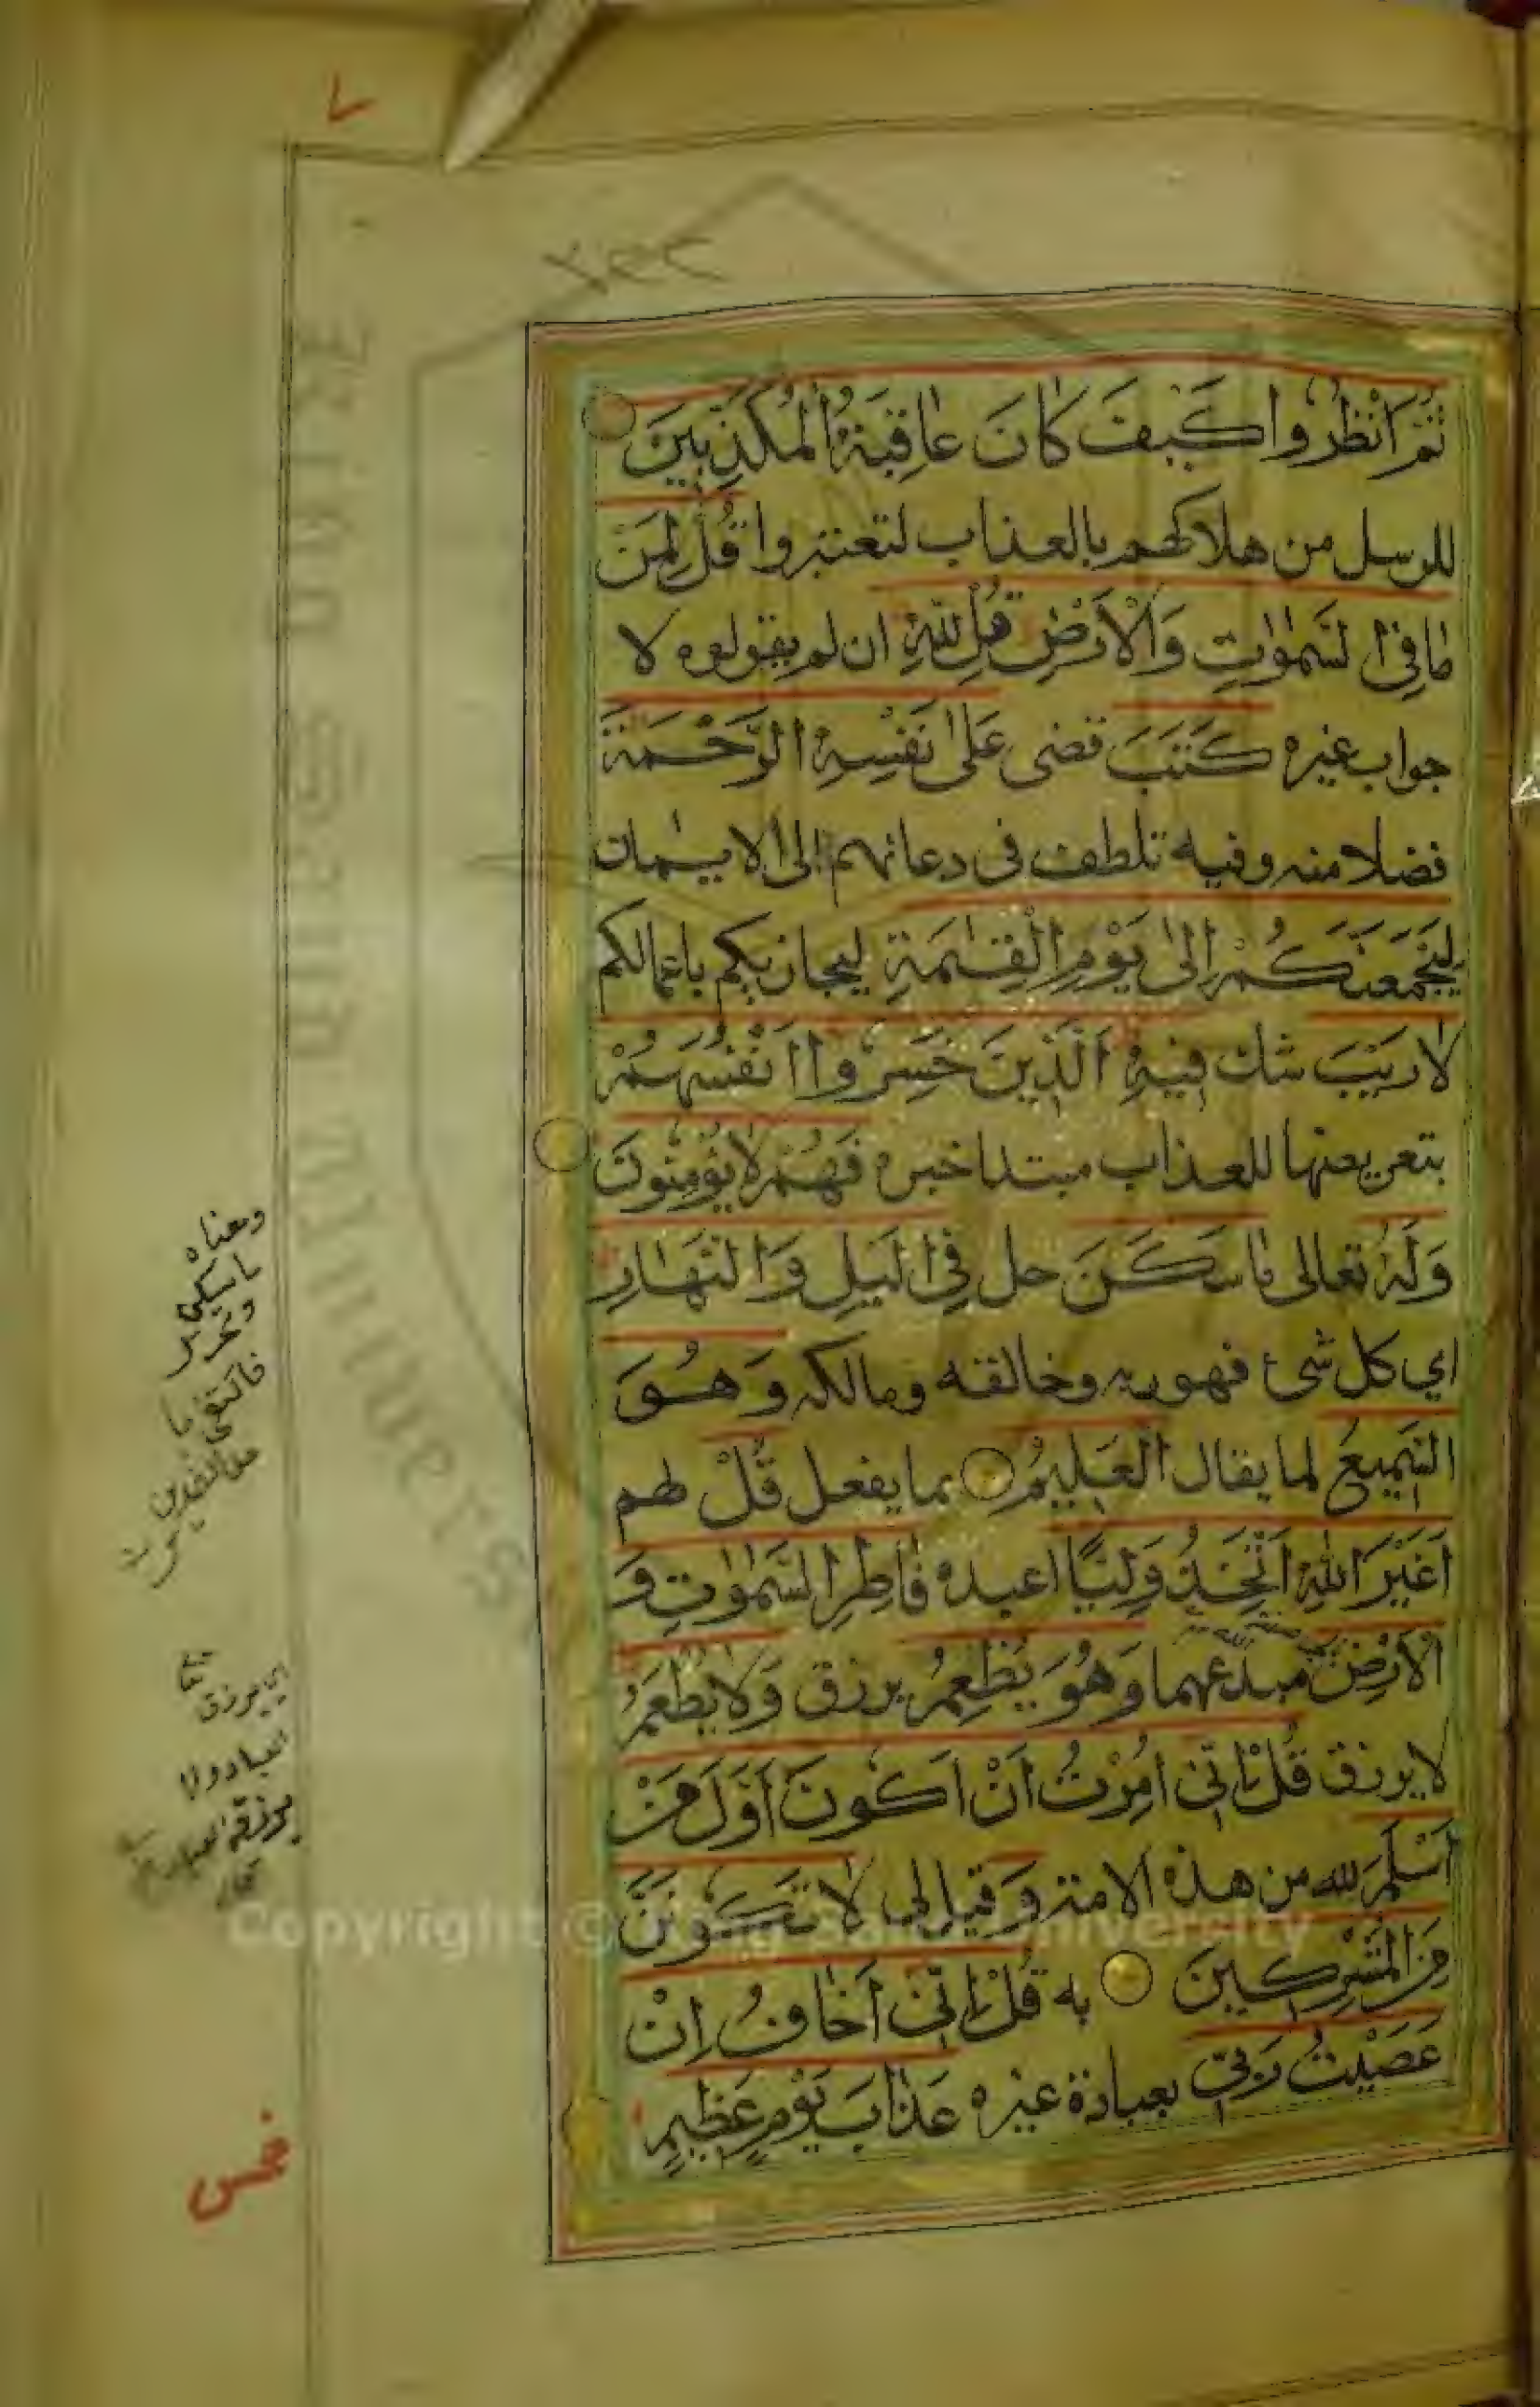 ٧
ثُمَّ انْظُرُوا كَيْفَ كَانَ عَاقِبَةُ الْمُكَذِّبِينَ
للرسل من هلاكهم بالعذاب لتعتبروا قُلْ لِمَنْ
مَا فِي السَّمٰوٰتِ وَالْاَرْضِ قُلْ لِلّٰهِ ان لم يقولوه لا
جواب غيره كَتَبَ قضى عَلٰى نَفْسِهِ الرَّحْمَةَ
فضلا منه وفيه تلطف فى دعائهم الى الايمان
لَيَجْمَعَنَّكُمْ اِلٰى يَوْمِ الْقِيٰمَةِ ليجازيكم باعمالكم
لَا رَيْبَ شك فِيهِ اَلَّذِينَ خَسِرُوا اَنْفُسَهُمْ
بتعريضها للعذاب مبتدا خبره فَهُمْ لَا يُؤْمِنُونَ
وَلَهُ تعالى مَا سَكَنَ حل فِي الَّيْلِ وَالنَّهَارِ
اي كل شئ فهو ربه وخالقه ومالكه وَهُوَ
السَّمِيعُ لما يقال الْعَلِيمُ بما يفعل قُلْ لهم
اَغَيْرَ اللّٰهِ اَتَّخِذُ وَلِيًّا اعبده فَاطِرِ السَّمٰوٰتِ وَ
الْاَرْضِ مبدعهما وَهُوَ يُطْعِمُ يرزق وَلَا يُطْعَمُ
لا يرزق قُلْ اِنِّي اُمِرْتُ اَنْ اَكُونَ اَوَّلَ مَنْ
اَسْلَمَ لله من هذه الامة وَ قيل لى لَا تَكُونَنَّ
مِنَ الْمُشْرِكِينَ به قُلْ اِنِّي اَخَافُ اِنْ
عَصَيْتُ رَبِّي بعبادة غيره عَذَابَ يَوْمٍ عَظِيمٍ
ومعناه
ما سكن
وتحرك
فاكتفى با
حد الضدين
اي يرزق
العباد ولا
يرزقه العباد
خمس
King Saud University
Copyright © King Saud University